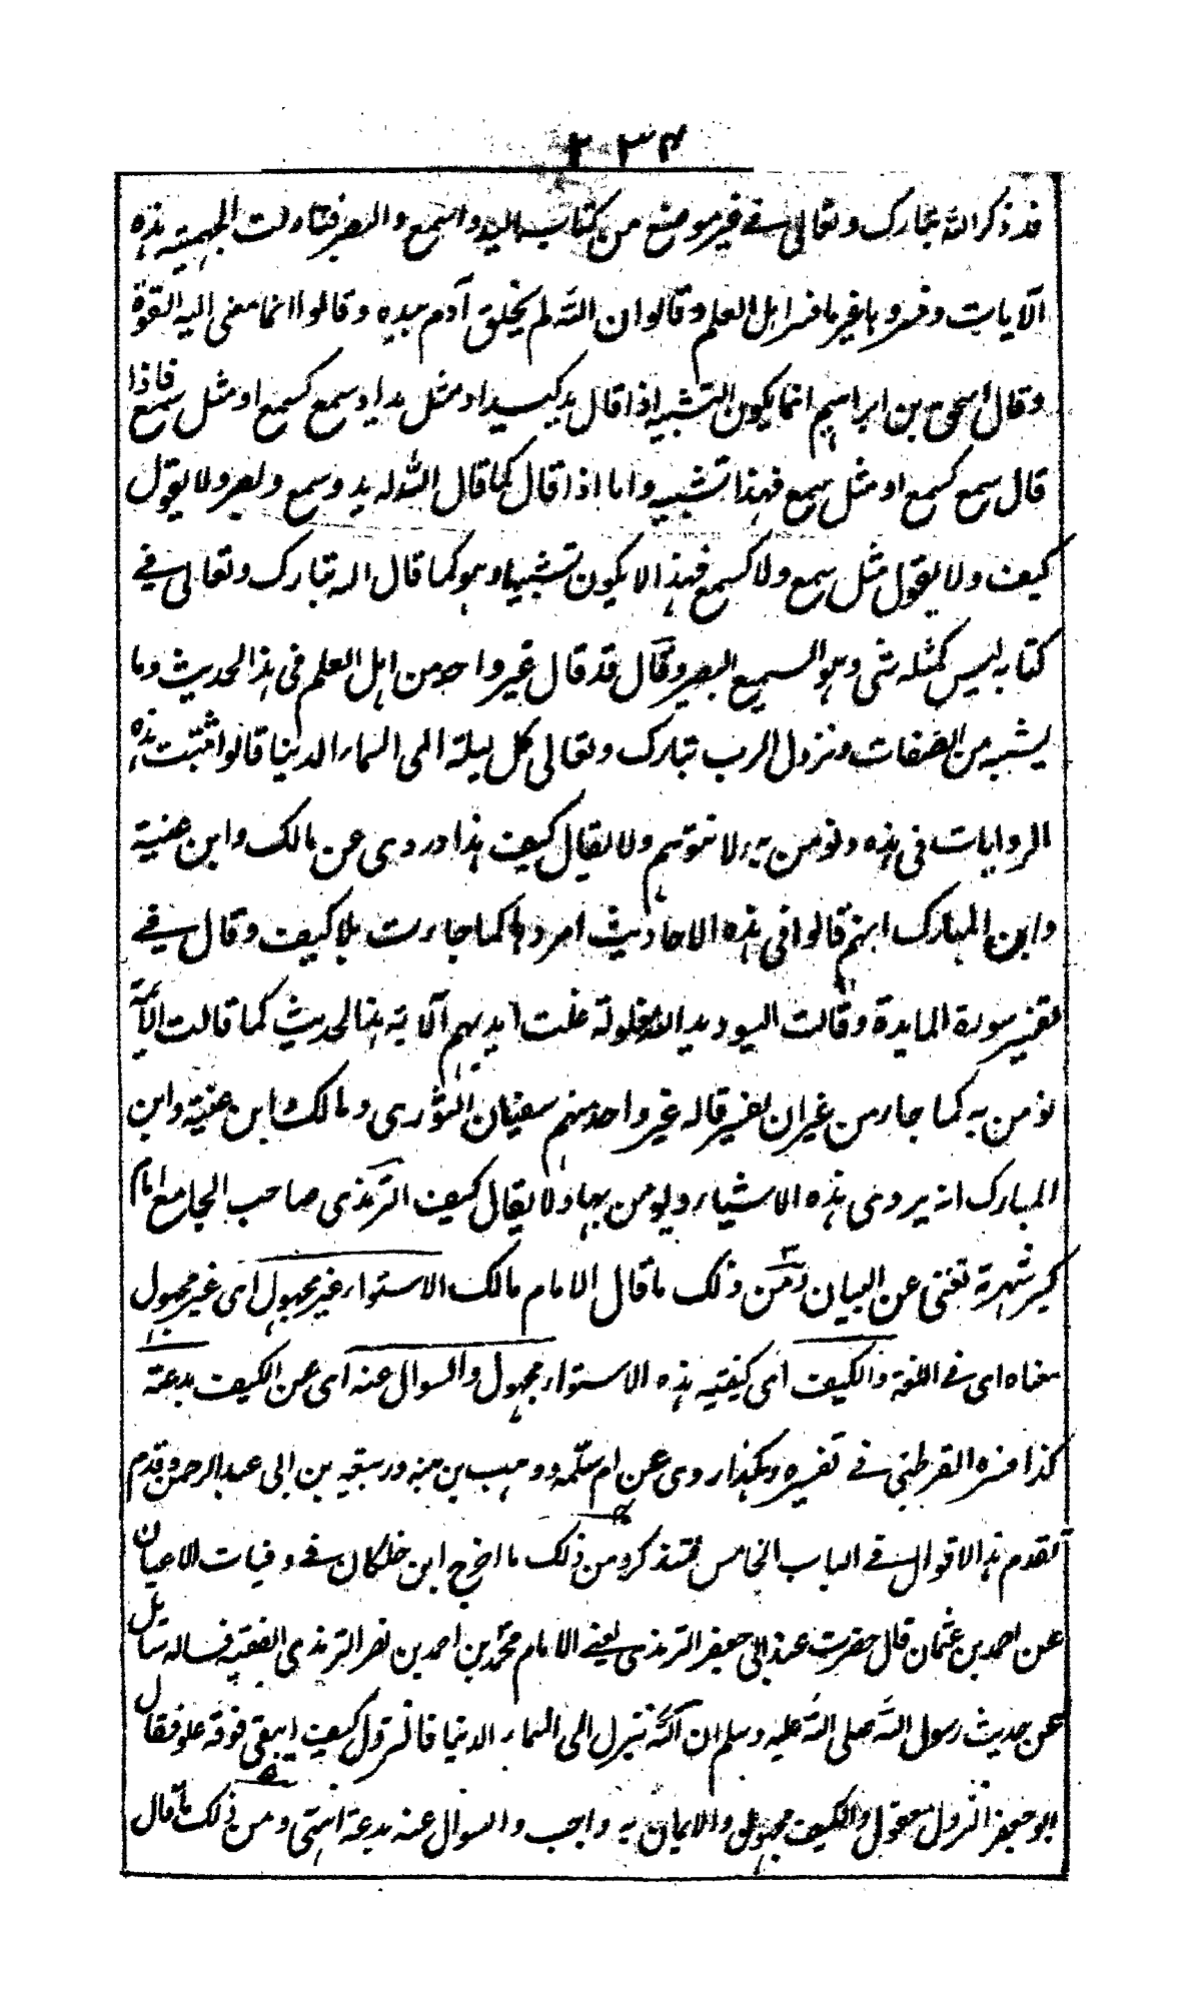 ۲۳۴
قد ذكر الله تبارك وتعالى في غير موضع من كتابه اليد والسمع والبصر فتاولت الجهمية هذه
الآيات وفسروها بغير ما فسر اهل العلم وقالوا ان الله لم يخلق آدم بيده وقالوا انما معنى اليد القوة
وقال اسحق بن ابراهيم انما يكون التشبيه اذا قال يد كيد او مثل يد او سمع كسمع او مثل سمع فاذا
قال سمع كسمع او مثل سمع فهذا تشبيه واما اذا قال كما قال الله له يد وسمع وبصر ولا يقول
كيف ولا يقول مثل سمع ولا كسمع فهذا لا يكون تشبيها وهو كما قال الله تبارك وتعالى في
كتابه ليس كمثله شئ وهو السميع البصير وقال قد قال غير واحد من اهل العلم في هذا الحديث وما
يشبه من الصفات ونزول الرب تبارك وتعالى كل ليلة الى السماء الدنيا قالوا ثبتت هذه
الروايات في هذه ونومن به ولا نتوهم ولا يقال كيف هذا وروى عن مالك وابن عنية
وابن المبارك انهم قالوا في هذه الاحاديث امروها كما جاءت بلا كيف وقال في
تفسير سورة المايدة وقالت اليهود يد الله مغلولة غلت ايديهم الآية هذا الحديث كما قالت الائمة
نؤمن به كما جاء من غير ان يفسر قاله غير واحد منهم سفيان الثوري ومالك وابن عنية وابن
المبارك انه يروى هذه الاشياء ويومن بها ولا يقال كيف الترمذي صاحب الجامع امام
كبير شهرة تغنى عن البيان ومن ذلك ما قال الامام مالك الاستواء غير مجهول اى غير مجهول
معناه اى في اللغة والكيف اى كيفية هذه الاستواء مجهول والسوال عنه اى عن الكيف بدعة
كذا فسره القرطبي في تفسيره وهكذا روى عن ام سلمة ووهب بن منبه وربيعة بن ابى عبد الرحمن وقدم
تقدم هذا الاقوال في الباب الخامس فتذكر ومن ذلك ما اخرج ابن خلكان في وفيات الاعيان
عن احمد بن عثمان قال حضرت عند ابى جعفر الترمذي يعني الامام محمد بن احمد بن نصر الترمذي الفقيه فساله سائل
عن حديث رسول الله صلى الله عليه وسلم ان الله ينزل الى السماء الدنيا فالنزول كيف يبقى فوقه علو فقال
ابو جعفر النزول معقول والكيف مجهول والايمان به واجب والسوال عنه بدعة انتهى ومن ذلك ما قال